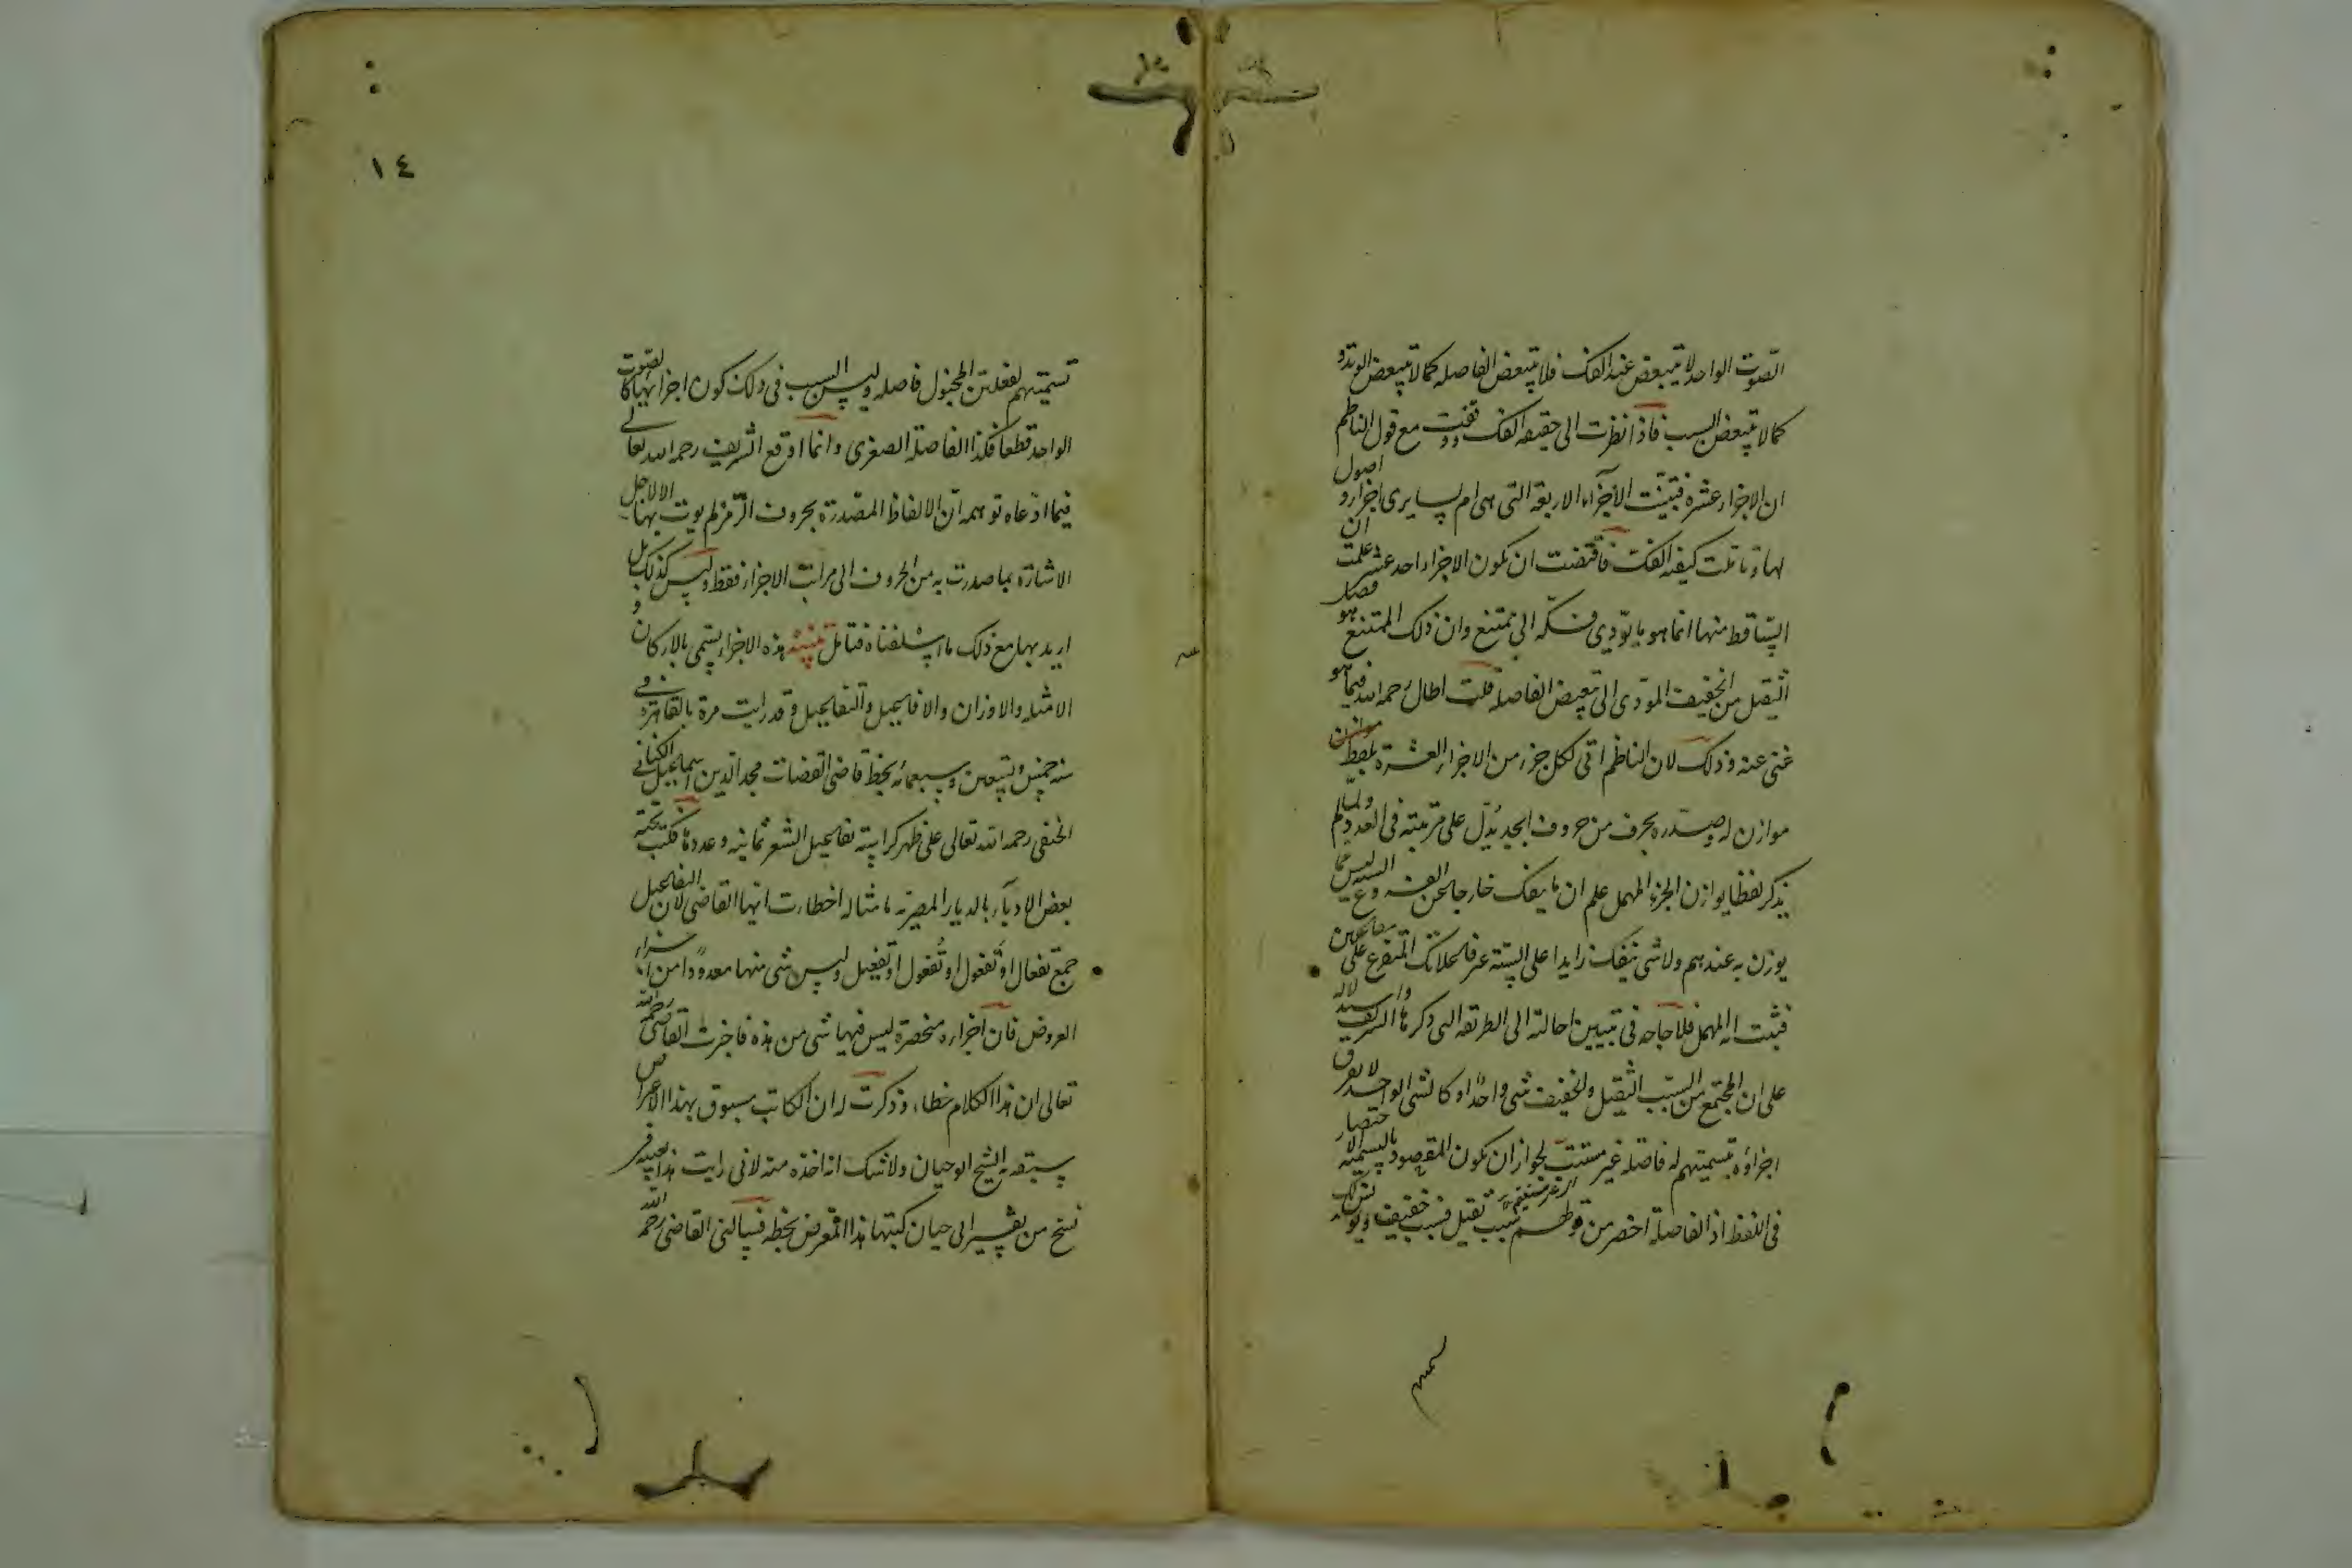 الصوت الواحد لا يتبعض عند الفك فلا يتبعض الفاصله كما لا يتبعض الوتد و
كما لا يتبعض السبب فاذا نظرت الى حقيقه الفك ووقفت مع قول الناظم
ان الاجزاء عشره فتبينت الاجزاء الاربعة التى هى ام لسايرى اجزاء و اصول
لها وتاملت كيفيه الفك فاقتضت ان تكون الاجزاء احد عشر علمت ان
الساقط منها انما هو ما يؤدى فكه الى ممتنع وان ذلك الممتنع هو فصل
الثقيل من الخفيف المؤدى الى تبعيض الفاصلة قلت اطال رحمه الله فيما هو
غنى عنه وذلك لان الناظم اتى لكل جزء من الاجزاء العشرة بلفظ موازن
موازن له صدره بحرف من حروف ابجد يدل على مرتبته فى العدد ولما لم
يذكر لفظا يوازن الجزء المهمل علم ان ما ينفك خارجا عن العشره ليس مما
يوزن به عندهم ولا شى ينفك زايدا على الستة غير فاعلاتك المتفرع على مفاعلتن
فثبت انه المهمل فلا حاجه فى تبيين احالته الى الطريقه التى ذكرها الشريف واستدلاله
على ان المجتمع من السبب الثقيل والخفيف شى واحد او كالشى الواحد لا يفرق
اجزاؤه بتسميتهم له فاصلة غير مستتب لجواز ان تكون المقصود بالتسمية الاختصار
فى اللفظ اذ الفاصلة اخصر من قولهم سبب ثقيل فسبب خفيف ويؤيد ذلك
١٤
تسميتهم لفعلتن المخبول فاصله وليس السبب فى ذلك كون اجزائها كالصوت
الواحد قطعا فكذا الفاصلة الصغرى وانما اوقع الشريف رحمه الله تعالى
فيما ادعاه توهمه ان الالفاظ المصدرة بحروف الرمز لم يوت بها الا لاجل
الاشارة بما صدرت به من الحروف الى مراتب الاجزاء فقط وليس كذلك بل
اريد بها مع ذلك ما اسلفناه فتامل تنبيه هذه الاجزاء يسمى بالاركان و
الامثله والاوزان والافاعيل والتفاعيل وقد رايت مرة بالقاهرة فى
سنه خمس وتسعين وسبعمائه بخط قاضى القضات مجد الدين اسماعيل الكنانى
الحنفى رحمه الله تعالى على ظهر كراسته تفاعيل الشعر ثمانيه وعددها فكتب تحته
بعض الادباء بالديار المصريه ما مثاله اخطات ايها القاضى لان التفاعيل
جمع تفعال او تفعول او تفعول او تفعيل وليس شى منها معدودا من اجزاء
العروض فان اجزاءه منحصرة ليس فيها شى من هذه فاخبرت القاضى رحمه الله
تعالى ان هذا الكلام خطاء وذكرت له ان الكاتب مسبوق بهذا الاعتراض
سبقه به الشيخ ابو حيان ولا شك انه اخذه منه لانى رايت هذا بعينه فى
نسخ من تفسير ابى حيان كتبها هذا المعترض بخطه فسالنى القاضى رحمه الله